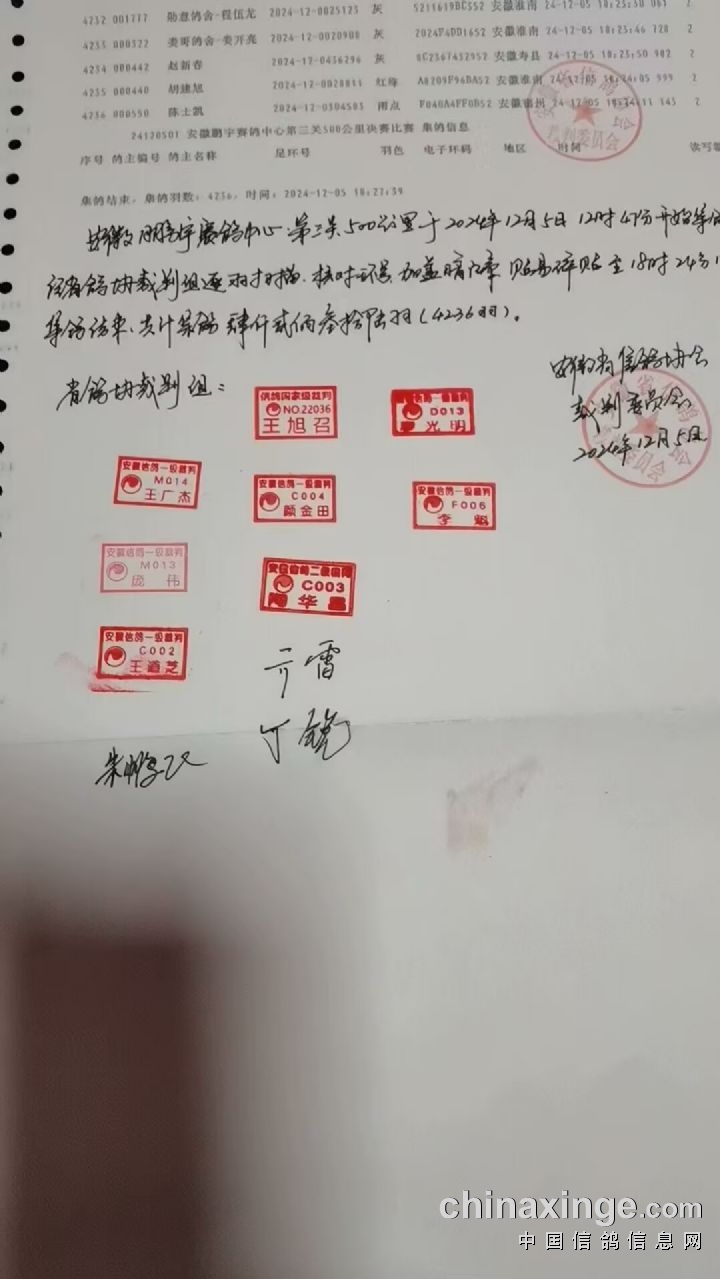 4232 001777 勋意鸽舍-程伍龙 2024-12-0025123 灰 5211619BC352 安徽淮南 24-12-05 18:23:30 061 2
4233 000322 姜哥鸽舍-姜开亮 2024-12-0020908 灰 2024F4DD1652 安徽淮南 24-12-05 18:23:46 728 2
4234 000442 赵新春 2024-12-0436296 灰 0C2367432952 安徽寿县 24-12-05 18:23:50 982 2
4235 000440 胡建旭 2024-12-0028811 红绛 A8209F96BA52 安徽淮南 24-12-05 18:24:05 999 2
4236 000550 陈士凯 2024-12-0304505 雨点 F040A4FF0D52 安徽宿州 24-12-05 18:24:11 145 2
24120501 安徽鹏宇赛鸽中心第三关500公里决赛比赛 集鸽信息
序号 鸽主编号 鸽主名称 足环号 羽色 电子环码 地区 时间 读写
集鸽结束，集鸽羽数：4236，时间：2024-12-05 18:27:39
安徽鹏宇赛鸽中心第三关500公里于2024年12月5日12时47分开始集鸽
省鸽协裁判组逐羽扫描、核对环号、加盖暗章 贴易碎贴至18时24分
集鸽结束，共计集鸽肆仟贰佰叁拾陆羽（4236羽）。
省鸽协裁判组：
安徽省信鸽协会
裁判委员会
2024年12月5日
信鸽国家级裁判
NO.22036
王旭召
信鸽一级裁判
D013
光明
安徽信鸽一级裁判
M014
王广杰
安徽信鸽一级裁判
C004
顾金田
安徽信鸽一级裁判
F006
李魁
安徽信鸽一级裁判
M013
庞伟
安徽信鸽二级裁判
C003
陶华昌
安徽信鸽一级裁判
C002
王道芝
丁雷
丁锐
朱鹏
chinaxinge.com
中国信鸽信息网